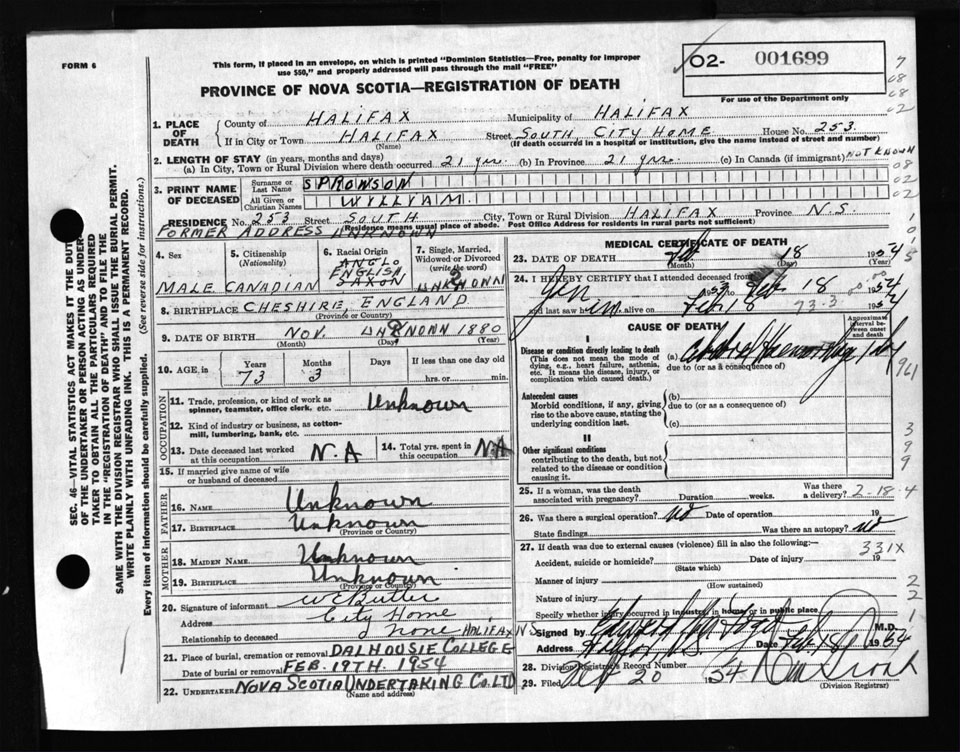 FORM 6
This form, if placed in an envelope, on which is printed "Dominion Statistics—Free, penalty for improper
use $50," and properly addressed will pass through the mail "FREE"
PROVINCE OF NOVA SCOTIA—REGISTRATION OF DEATH
O2- 001699
For use of the Department only
1. PLACE OF DEATH
County of HALIFAX Municipality of HALIFAX
If in City or Town HALIFAX Street SOUTH, CITY HOME House No. 253
(Name) (If death occurred in a hospital or institution, give the name instead of street and number)
2. LENGTH OF STAY (in years, months and days)
(a) In City, Town or Rural Division where death occurred 21 yrs. (b) In Province 21 yrs. (c) In Canada (if immigrant) NOT KNOWN
3. PRINT NAME OF DECEASED
Surname or Last Name SPRONSON
All Given or Christian Names WILLIAM
RESIDENCE No. 253 Street SOUTH City, Town or Rural Division HALIFAX Province N.S.
(Residence means usual place of abode. Post Office Address for residents in rural parts not sufficient)
FORMER ADDRESS UNKNOWN
4. Sex
MALE
5. Citizenship (Nationality)
CANADIAN
6. Racial Origin
ANGLO
ENGLISH
SAXON
7. Single, Married, Widowed or Divorced (write the word)
UNKNOWN
8. BIRTHPLACE CHESHIRE, ENGLAND
(Province or Country)
9. DATE OF BIRTH NOV. UNKNOWN 1880
(Month) (Day) (Year)
10. AGE, in Years Months Days If less than one day old
73 3 hrs. or min.
OCCUPATION
11. Trade, profession, or kind of work as spinner, teamster, office clerk, etc. Unknown
12. Kind of industry or business, as cotton-mill, lumbering, bank, etc.
13. Date deceased last worked at this occupation N.A
14. Total yrs. spent in this occupation N.A
15. If married give name of wife or husband of deceased
FATHER
16. NAME Unknown
17. BIRTHPLACE Unknown
(Province or Country)
MOTHER
18. MAIDEN NAME Unknown
19. BIRTHPLACE Unknown
(Province or Country)
20. Signature of informant W E Butler
Address City Home
Relationship to deceased none HALIFAX NS
21. Place of burial, cremation or removal DALHOUSIE COLLEGE
Date of burial or removal FEB. 19TH. 1954
22. UNDERTAKER NOVA SCOTIA UNDERTAKING CO. LTD
(Name and address)
MEDICAL CERTIFICATE OF DEATH
23. DATE OF DEATH Feb 18 1954
(Month) (Day)
24. I HEREBY CERTIFY that I attended deceased from
Jan 1953 Feb 18 1954
and last saw him alive on Feb 18 1954
73.3
CAUSE OF DEATH
Approximate interval between onset and death
I
Disease or condition directly leading to death
(This does not mean the mode of dying, e.g., heart failure, asthenia, etc. It means the disease, injury, or complication which caused death.)
(a) Cerebral Haemorrhage 1 day
due to (or as a consequence of)
Antecedent causes
Morbid conditions, if any, giving rise to the above cause, stating the underlying condition last.
(b)
due to (or as a consequence of)
(c)
II
Other significant conditions
contributing to the death, but not related to the disease or condition causing it.
25. If a woman, was the death associated with pregnancy? Duration weeks. Was there a delivery? 2-18-4
26. Was there a surgical operation? No Date of operation 19
State findings Was there an autopsy? No
27. If death was due to external causes (violence) fill in also the following:—
331X
Accident, suicide or homicide? Date of injury 19
(State which)
Manner of injury
(How sustained)
Nature of injury
Specify whether injury occurred in industry, in home or in public place
Signed by Edward M.D.
Address Halifax N.S. Feb 18 1954
28. Division Registrar's Record Number
29. Filed Feb 20 1954
(Division Registrar)
SEC. 46—VITAL STATISTICS ACT MAKES IT THE DUTY
OF THE UNDERTAKER OR PERSON ACTING AS UNDER-
TAKER TO OBTAIN ALL THE PARTICULARS REQUIRED
IN THE "REGISTRATION OF DEATH" AND TO FILE THE
SAME WITH THE DIVISION REGISTRAR WHO SHALL ISSUE THE BURIAL PERMIT.
WRITE PLAINLY WITH UNFADING INK. THIS IS A PERMANENT RECORD.
Every item of information should be carefully supplied. (See reverse side for instructions.)